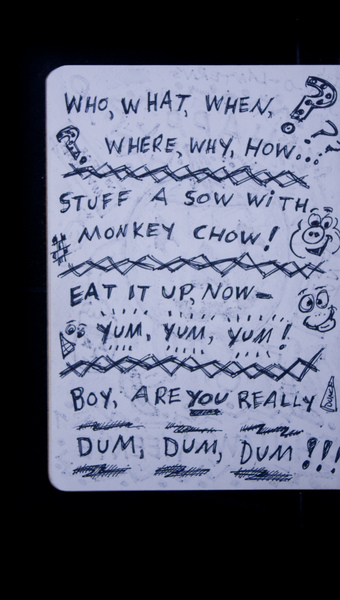 WHO, WHAT, WHEN,
WHERE, WHY, HOW...?
STUFF A SOW WITH
MONKEY CHOW!
EAT IT UP, NOW—
YUM, YUM, YUM!
BOY, ARE YOU REALLY
DUM, DUM, DUM!!!